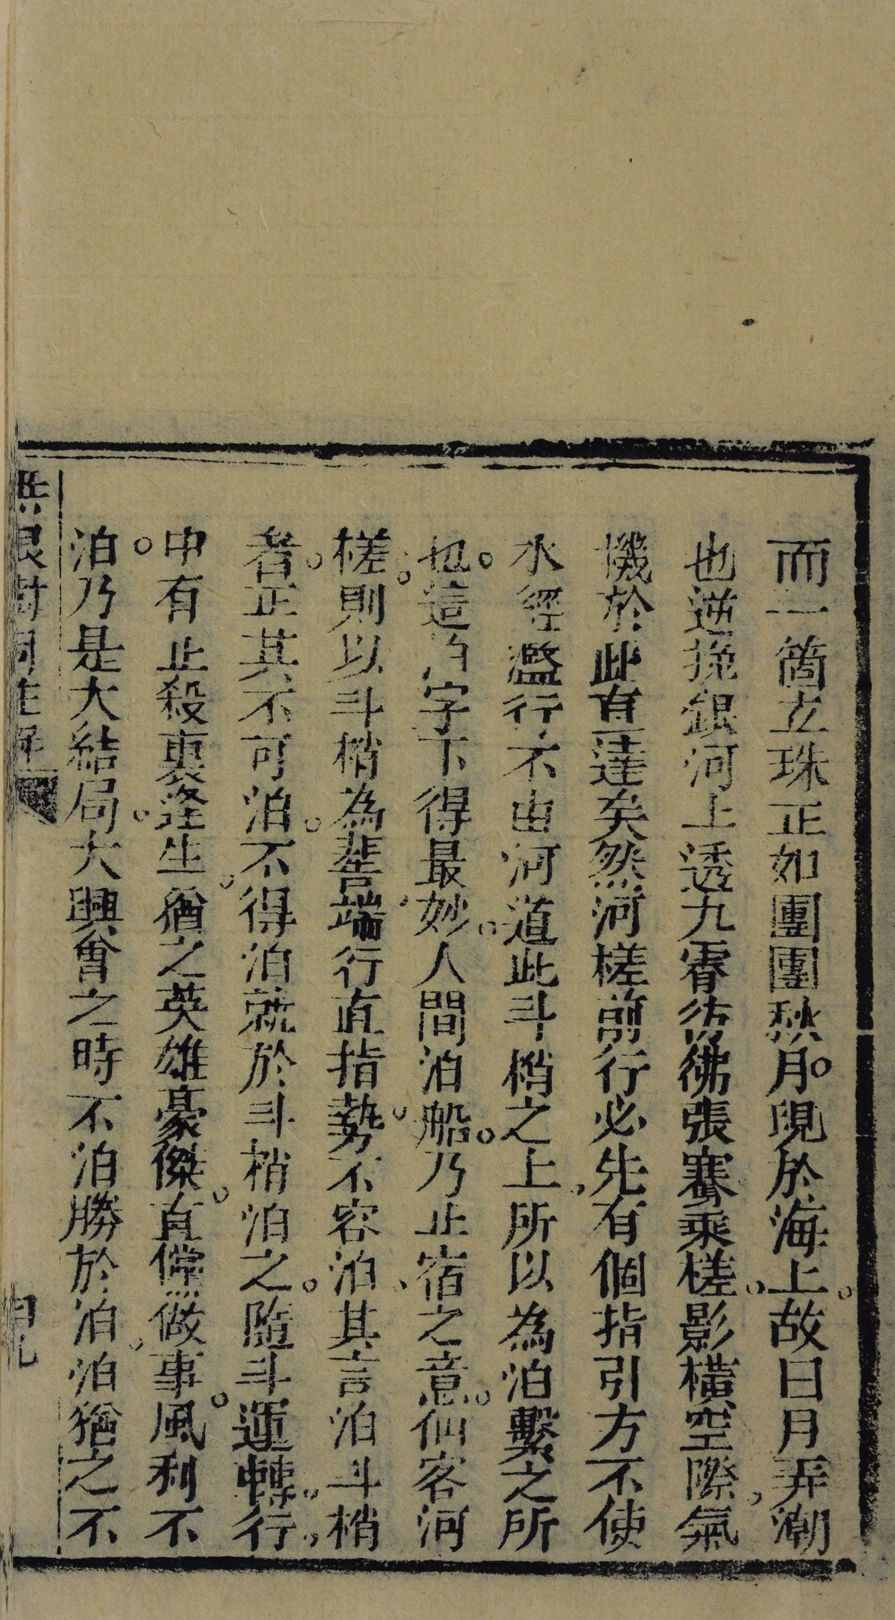 而一箇立珠正如團團愁月。現於海上。故曰月弄潮
也逆挽銀河上透九霄彷彿張騫乘槎。影橫空際，氣
機於此直達矣然河槎前行必先有個指引方不使
水經濫行不由河道此斗梢之上，所以為泊繫之所
也。這泊字下得最妙。人間泊船。乃止宿之意。仙客河
槎。則以斗梢為蓍端，行直指勢。不容泊、其言泊斗梢
者。正其不可泊。不得泊就於斗梢泊之。隨斗運轉。行，
中有止殺裏逢生，猶之英雄豪傑。直儻做事。風利不
泊。乃是大結局。大興會之時不泊勝於泊，泊猶之不